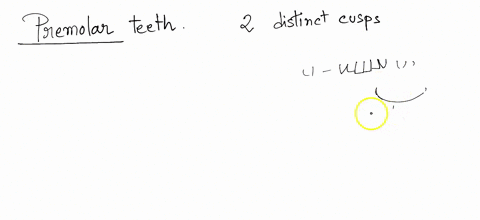 Premolar teeth. 2 distinct cusps